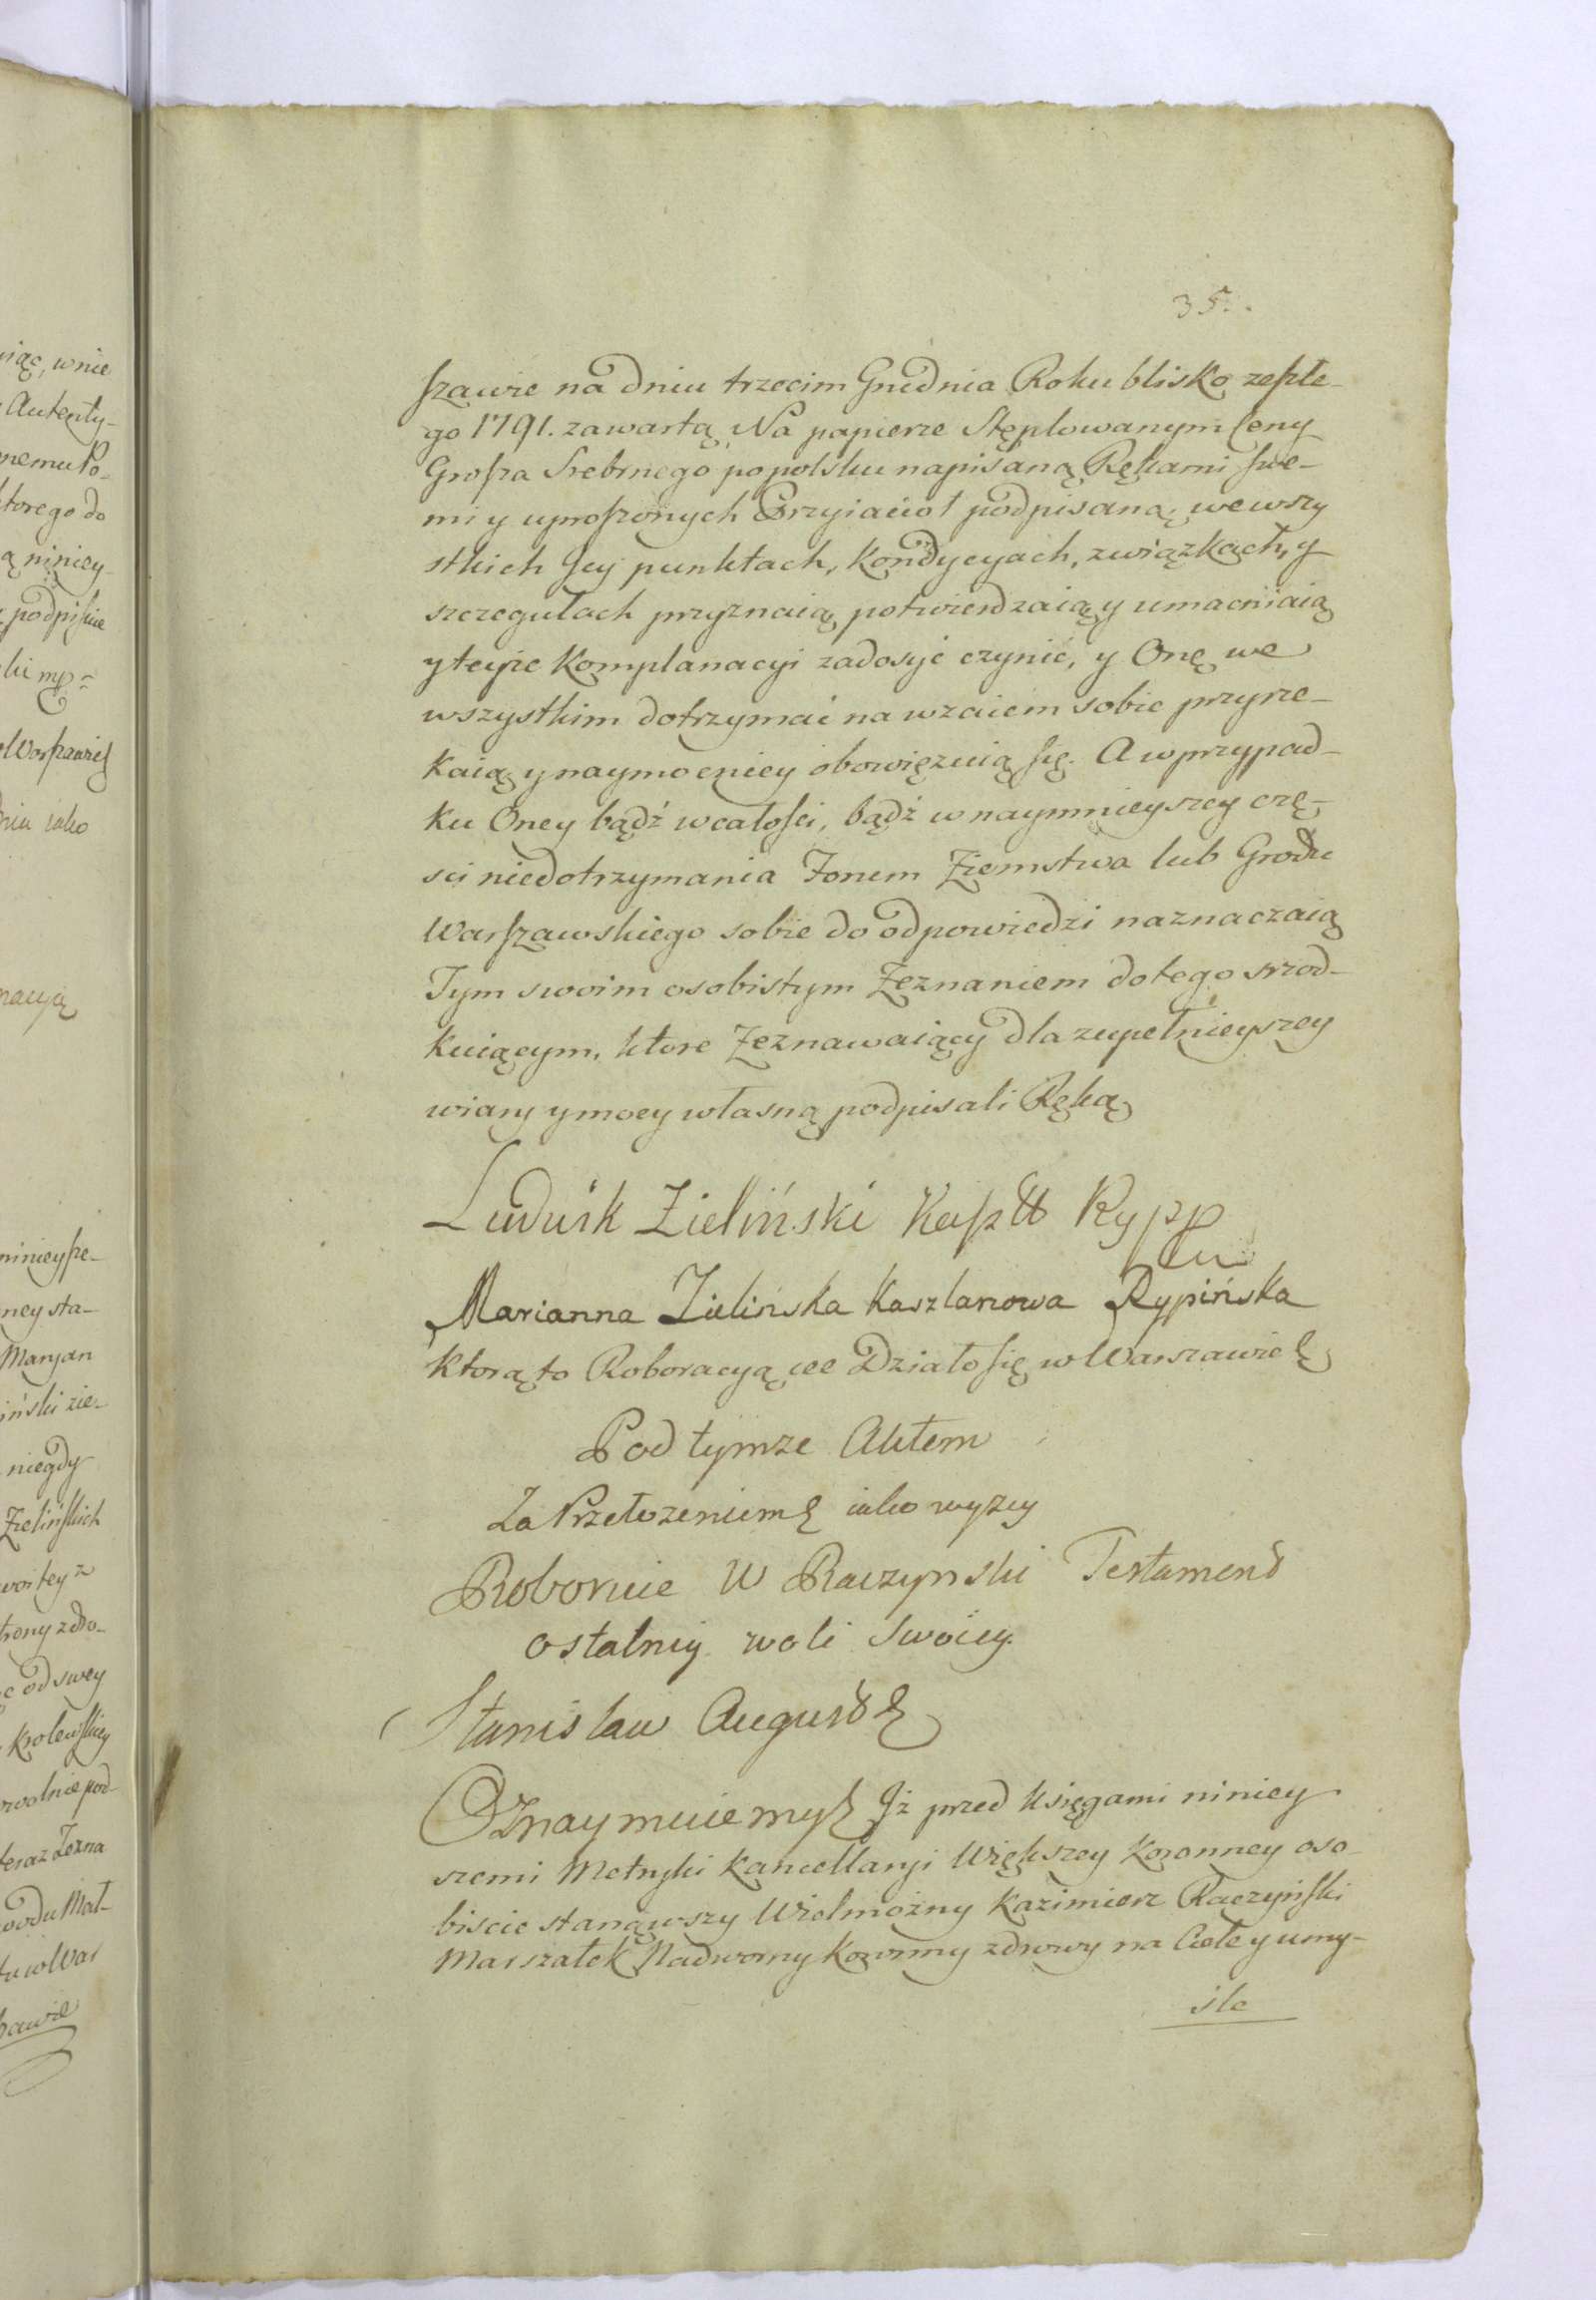 35.
szawie na dniu trzecim Grudnia Roku blisko zeszłe-
go 1791. zawartą, Na papierze Stęplowanym Ceny
Grosza Srebrnego popolsku napisaną Rękami swe-
mi y uproszonych Przyiacioł podpisaną, we wszy
stkich Jey punktach, Kondycyach, związkach, y
szczegułach przyznaią, potwierdzaią y umacniaią
y teyże Komplanacyi zadosyć czynić, y Onę we
wszystkim dotrzymać na wzaiem sobie przyrze-
kaią y naymocniey obowięzuią się. A w przypad-
ku Oney bądź w całości, bądź w naymnieyszey czę-
sci niedotrzymania Forum Ziemstwa lub Grodu
Warszawskiego sobie do odpowiedzi naznaczaią
Tym swoim osobistym Zeznaniem do tego srzod-
kuiącym, ktore Zeznawaiący dla zupełnieyszey
wiary y mocy własną podpisali Ręką
Ludwik Zieliński Kasztt Rypp
Marianna Zielinska Kasztlanowa Rypińska
Ktorą to Roboracyą etc Działo się w Warszawie
Pod tymże Aktem
Za Przełożeniem iako wyzey
Roboruie W Raczynski Testament
ostatniy woli swoiey.
Stanisław August
Oznaymuiemy Iż przed Księgami niniey
szemi Metryki Kancellaryi Większey Koronney oso-
biscie stanąwszy Wielmożny Kazimierz Raczyński
Marszałek Nadworny Koronny zdrowy na Ciele y umy-
śle